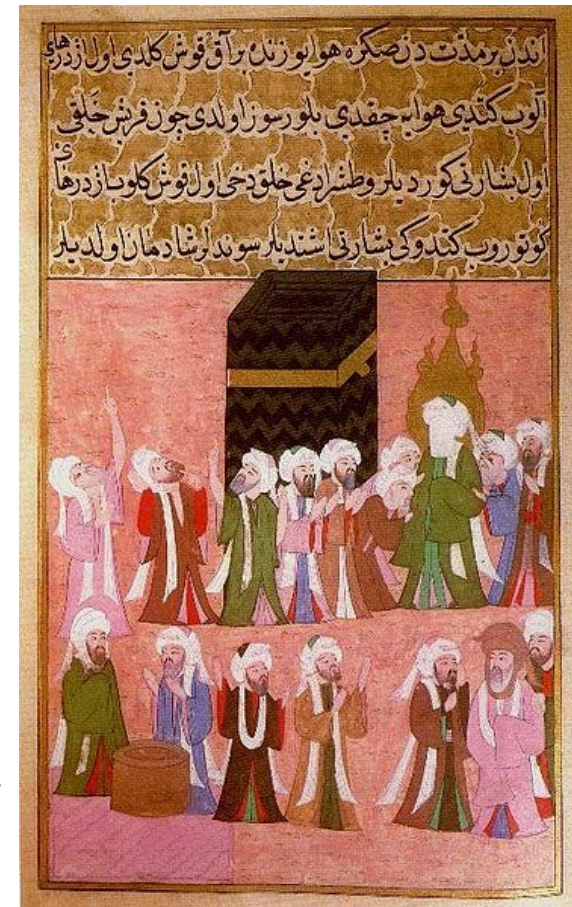 اندن بر مدت دن صكره هوا يوزندن بر آق قوش كلدی اول ازدرهای
آلوب كتدی هوایه چقدی بلورسوز اولدی چون قریش خلقی
اول بشارتی كوردیلر وطشرادغی خلق دخی اول قوش كلوب ازدرهای
كوتوروب كتدوكی بشارتی اشتدیلر سوندلر شادمان اولدیلر